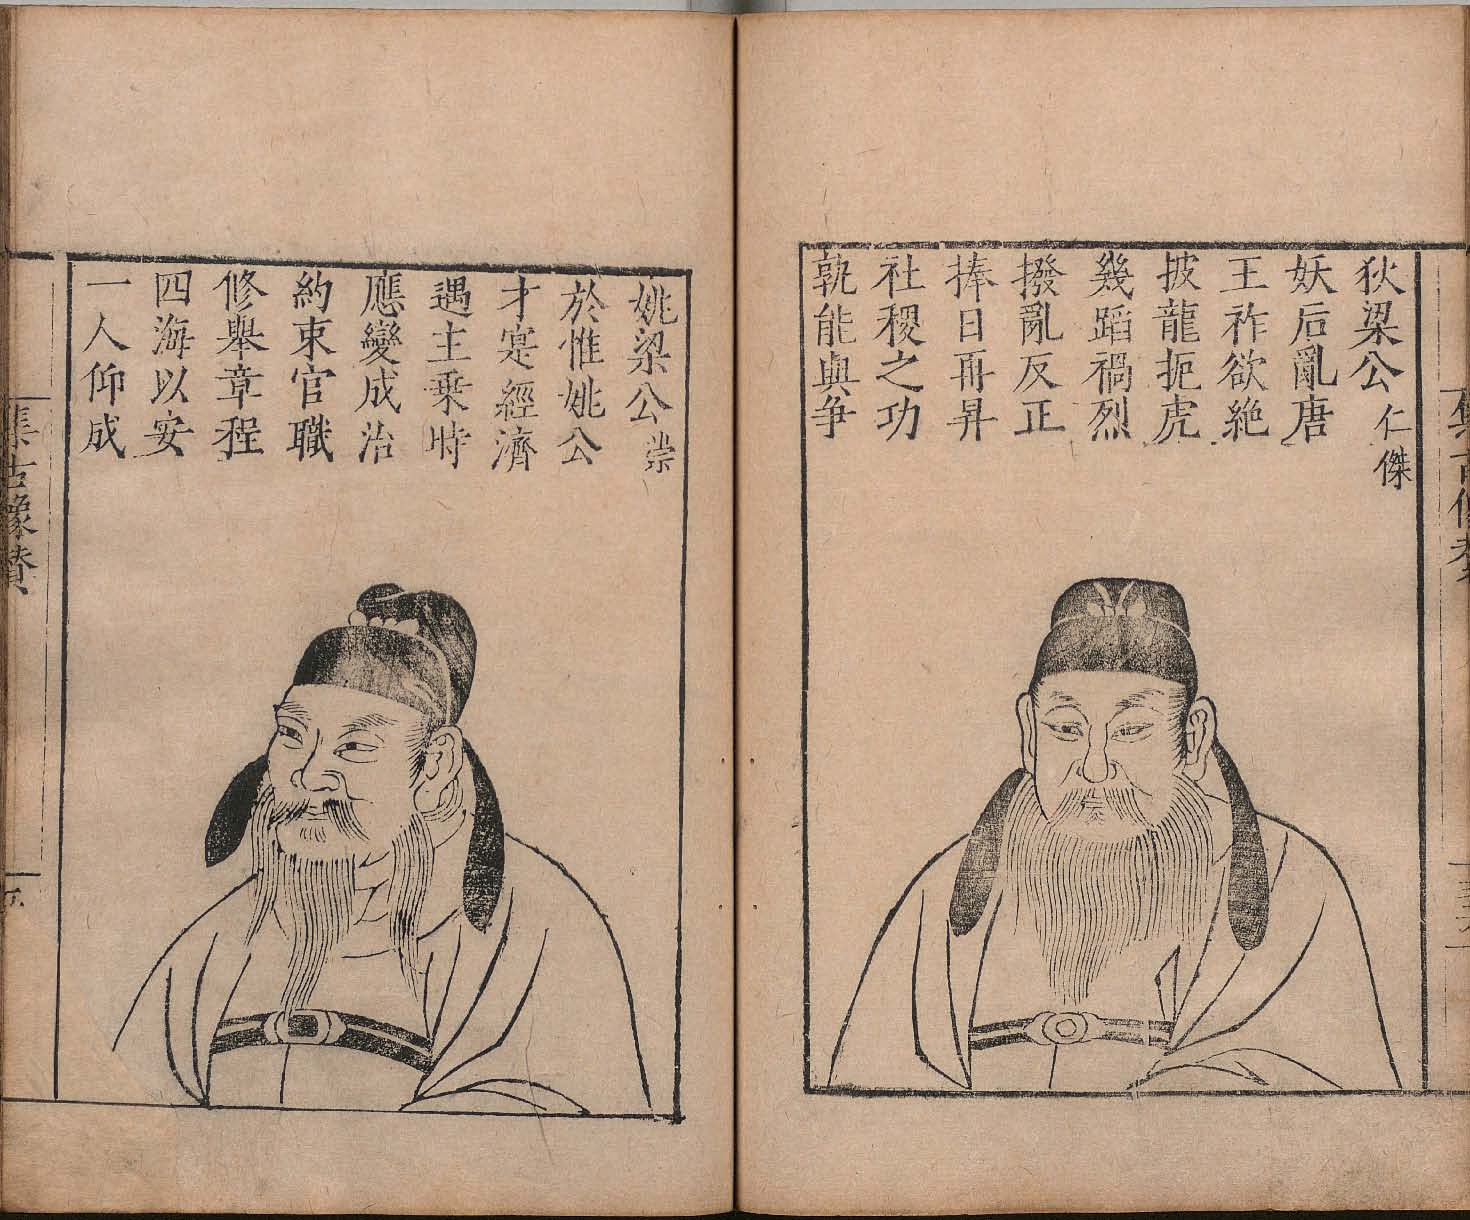 狄梁公仁傑
妖后亂唐
王祚欲絶
披龍扼虎
幾蹈禍烈
撥亂反正
捧日再昇
社稷之功
孰能與爭
姚梁公崇
於惟姚公
才寔經濟
遇主乗時
應變成治
約束官職
修舉章程
四海以安
一人仰成
集古像贊